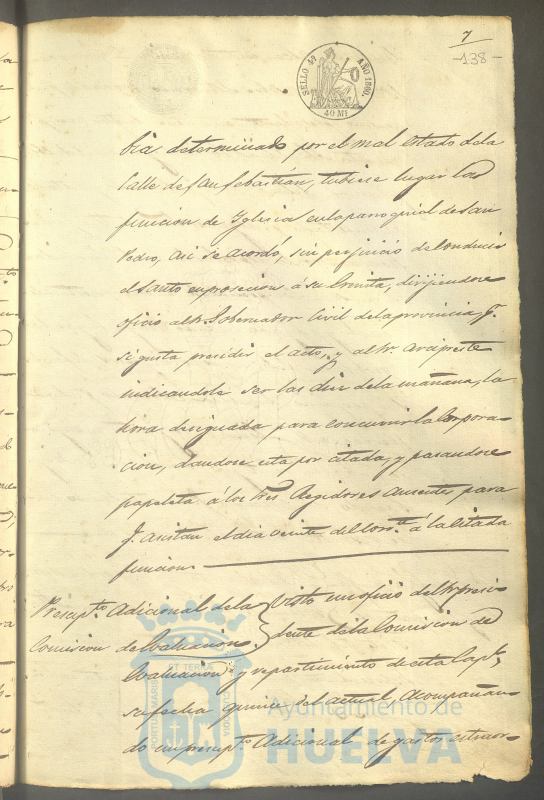 7
-138-
SELLO 4º AÑO 1860.
40 Ms
bia determinado por el mal estado de la
Calle de San Sebastian, tubiese lugar la
funcion de Yglesia en la parroquial de San
Pedro, asi se acordó, sin perjuicio de conducir
el Santo en prosecion á su Ermita, dirijiendose
oficio al Sr. Gobernador Civil de la provincia p.
si gusta presidir el acto, y al Sr. Arcipreste
indicandole ser las diez de la mañana, la
hora designada para concurrir la Corpora-
cion, dandose esta por citada, y pasandose
papeleta á los tres Regidores ausentes, para
q. asistan el dia veinte del corrte. á la citada
funcion.
Presupto. Adicional de la
Comision de Evaluacion.
Visto un oficio del Sr. presi-
dente de la Comision de
Evaluacion y repartimiento de esta Capl.,
su fecha quince del actual, acompañan-
do un presupto. Adicional de gastos estraor-
PORTUS MARIS ET TERRAE CUSTODIA
Ayuntamiento de
HUELVA